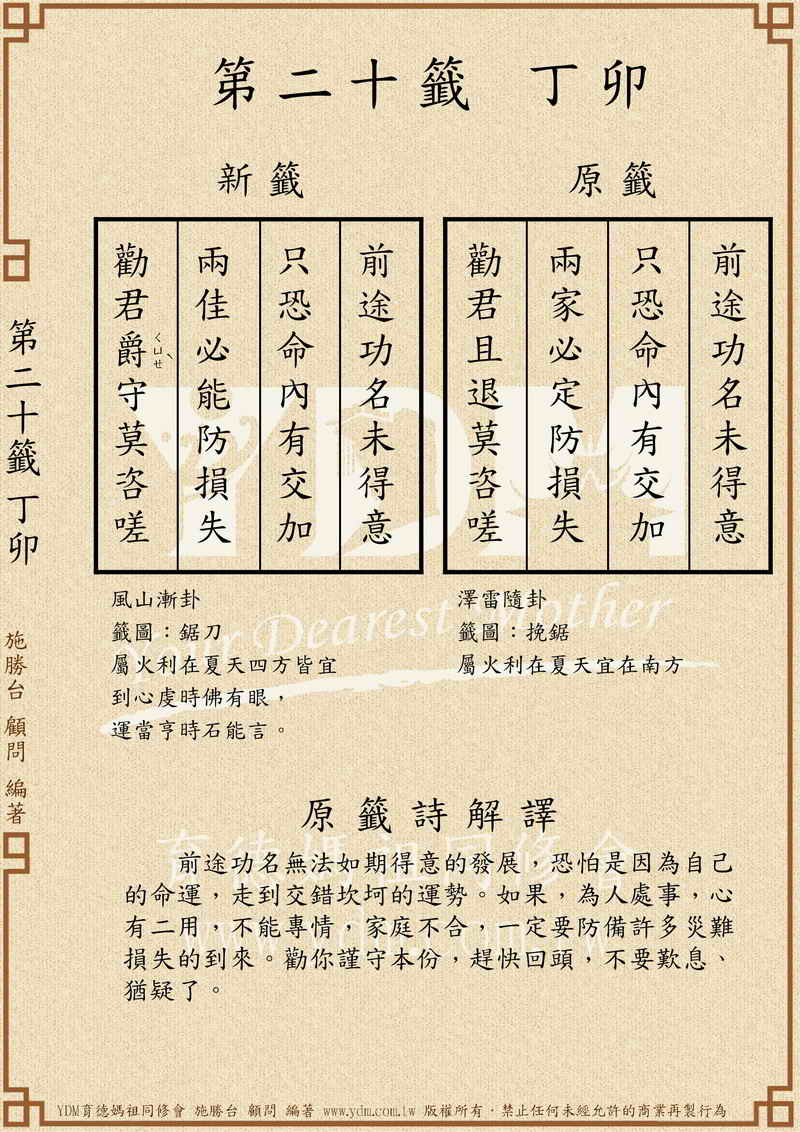 第二十籤 丁卯
原籤
前途功名未得意
只恐命內有交加
兩家必定防損失
勸君且退莫咨嗟
澤雷隨卦
籤圖：挽鋸
屬火利在夏天宜在南方
新籤
前途功名未得意
只恐命內有交加
兩佳必能防損失
勸君爵守莫咨嗟
ㄑㄩㄝˋ
風山漸卦
籤圖：鋸刀
屬火利在夏天四方皆宜
到心虔時佛有眼，
運當亨時石能言。
原籤詩解譯
前途功名無法如期得意的發展，恐怕是因為自己
的命運，走到交錯坎坷的運勢。如果，為人處事，心
有二用，不能專情，家庭不合，一定要防備許多災難
損失的到來。勸你謹守本份，趕快回頭，不要歎息、
猶疑了。
第二十籤 丁卯
施勝台 顧問 編著
YDM
Your Dearest Mother
育德媽祖同修會
www.ydm.com.tw
YDM育德媽祖同修會 施勝台 顧問 編著 www.ydm.com.tw 版權所有．禁止任何未經允許的商業再製行為